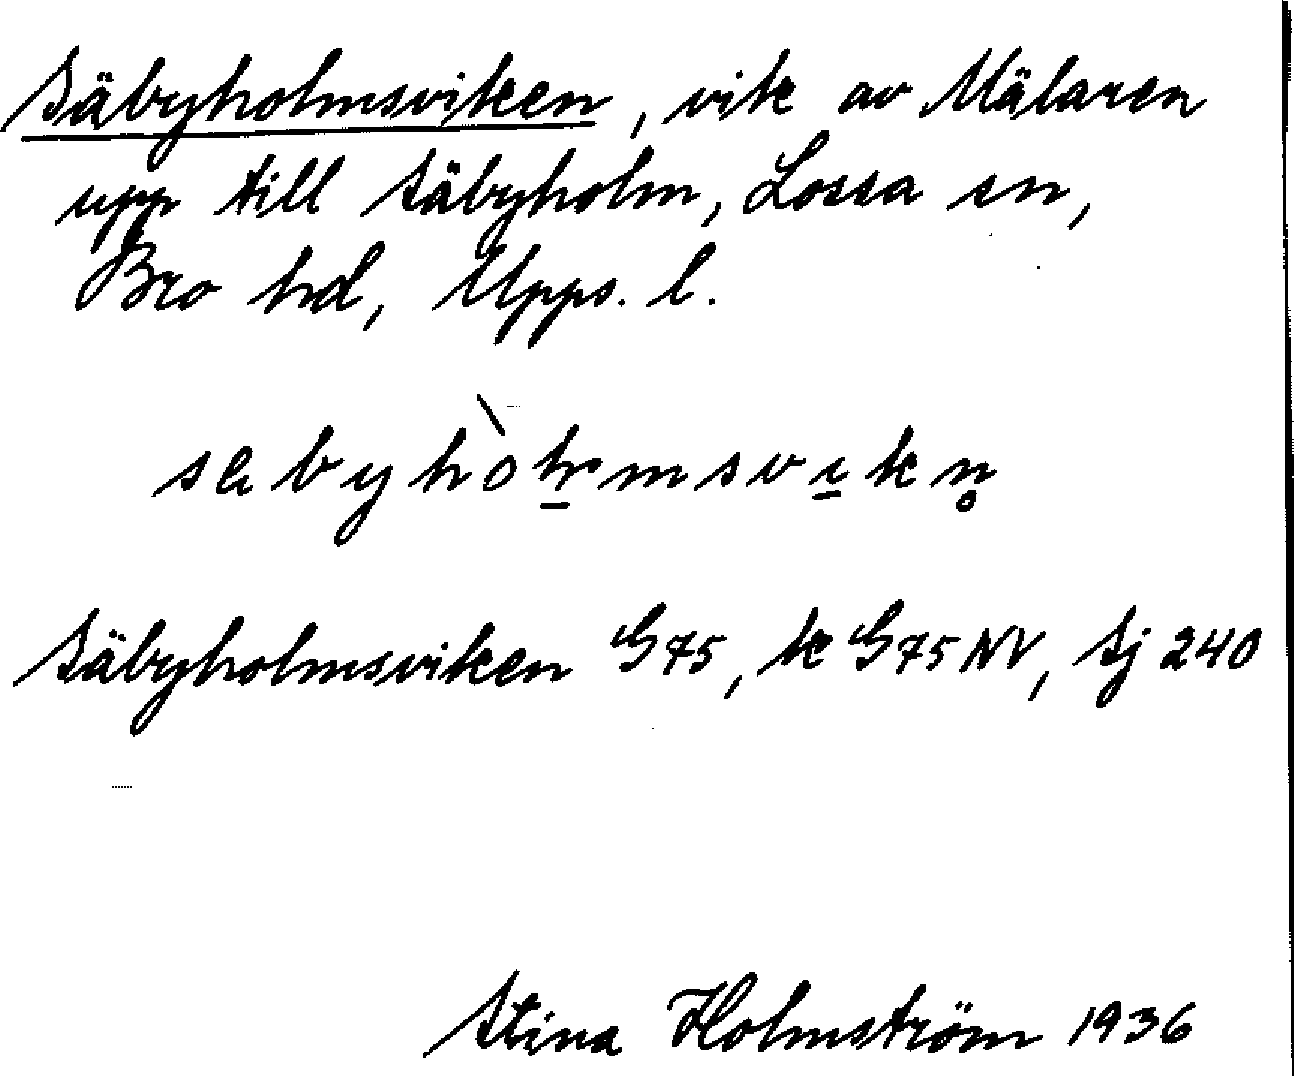 Säbyholmsviken, vik av Mälaren
upp till Säbyholm, Lossa sn,
Bro hd, Upps. l.
Säbyholmsviken G75, k G75 NV, Sj 240
Stina Holmström 1936